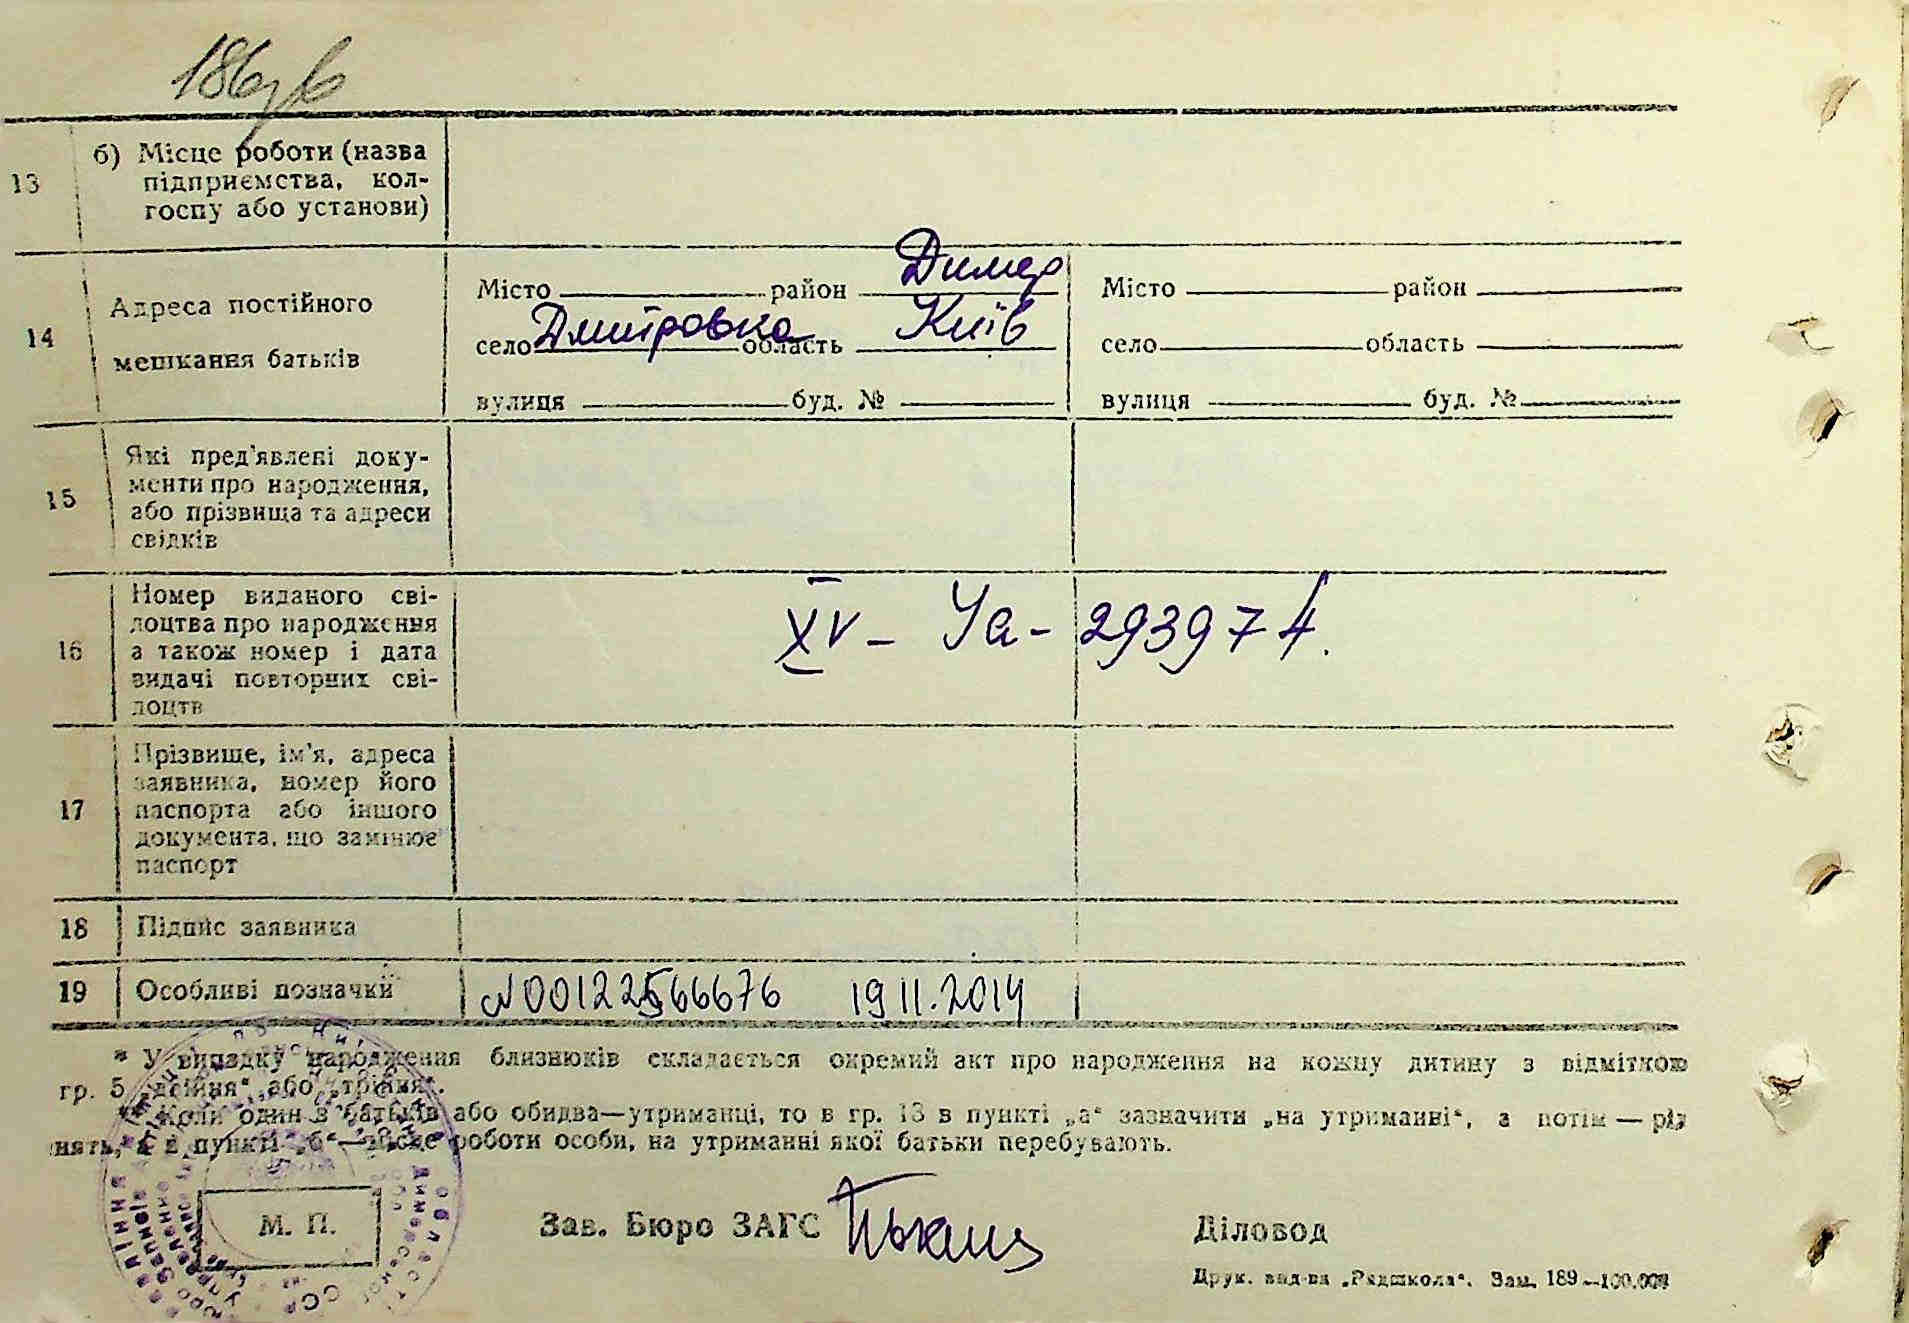 13
б) Місце роботи (назва
підприємства, кол-
госпу або установи)
14
Адреса постійного
мешкання батьків
Місто район Димер
село Дмитровка область Київ
вулиця буд. №
Місто район
село область
вулиця буд. №
15
Які пред'явлені доку-
менти про народження,
або прізвища та адреси
свідків
16
Номер виданого сві-
доцтва про народження
а також номер і дата
видачі повторних сві-
доцтв
XV – Уа – 293974.
17
Прізвище, ім'я, адреса
заявника, номер його
паспорта або іншого
документа, що замінює
паспорт
18
Підпис заявника
19
Особливі позначки
N00122566676 19 11.2014
* У випадку народження близнюків складається окремий акт про народження на кожну дитину з відміткою
гр. 5 „двійня“ або „трійня“.
Коли один з батьків або обидва—утриманці, то в гр. 13 в пункті „а“ зазначити „на утриманні“, а потім —
а в пункті „б“—місце роботи особи, на утриманні якої батьки перебувають.
М. П.
Зав. Бюро ЗАГС
Діловод
Друк. вид-ва „Радшкола“. Зам. 189—100.000